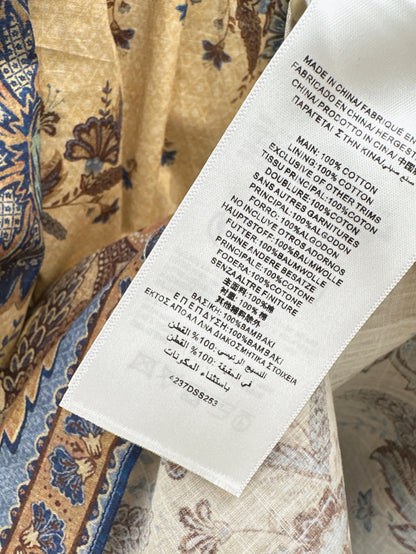 MADE IN CHINA/FABRIQUÉ EN
FABRICADO EN CHINA/HERGEST
CHINA/PRODOTTO IN CINA/中国
ΠΑΡΑΓΕΤΑΙ ΣΤΗΝ ΚΙΝΑ/
MAIN: 100% COTTON
LINING: 100% COTTON
EXCLUSIVE OF OTHER TRIMS
TISSU PRINCIPAL:100%COTON
DOUBLURE:100%COTON
SANS AUTRES GARNITURES
PRINCIPAL:100%ALGODON
FORRO:100%ALGODON
NO INCLUYE OTROS ADORNOS
HAUPTSTOFF:100%BAUMWOLLE
FUTTER:100%BAUMWOLLE
OHNE ANDERE BESÄTZE
PRINCIPALE:100%COTONE
FODERA:100%COTONE
SENZA ALTRE FINITURE
面料:100%棉
衬里:100%棉
其他辅料除外
ΒΑΣΙΚΗ:100%ΒΑΜΒΑΚΙ
ΕΠΕΝΔΥΣΗ:100%ΒΑΜΒΑΚΙ
ΕΚΤΟΣ ΑΠΟ ΑΛΛΑ ΔΙΑΚΟΣΜΗΤΙΚΑ ΣΤΟΙΧΕΙΑ
النسيج الرئيسي:100% القطن
في الحقيقة:100% القطن
باستثناء المكونات
4237DSS253